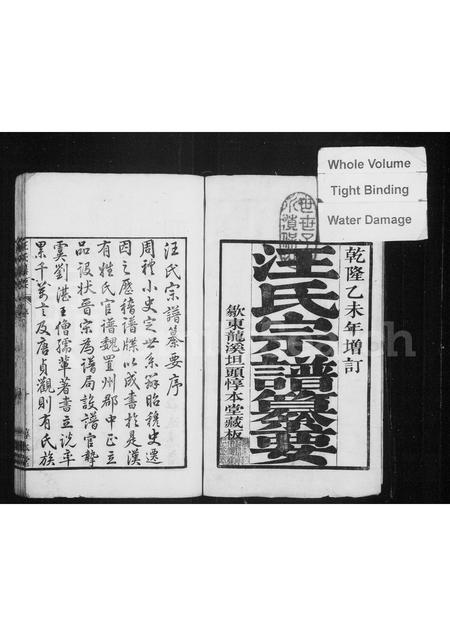 Whole Volume
Tight Binding
Water Damage
乾隆乙未年增訂
汪氏宗譜纂要
歙東龍溪坦頭惇本堂藏板
汪氏宗譜纂要序
周禮小史定世系辯昭穆史遷
因之歷稽譜牒以成書於是漢
有姓氏官譜魏置州郡中正立
品設狀晉宗為譜局設譜官摯
虞劉湛王僧孺輩著書立說率
累千萬言及唐貞觀則有氏族